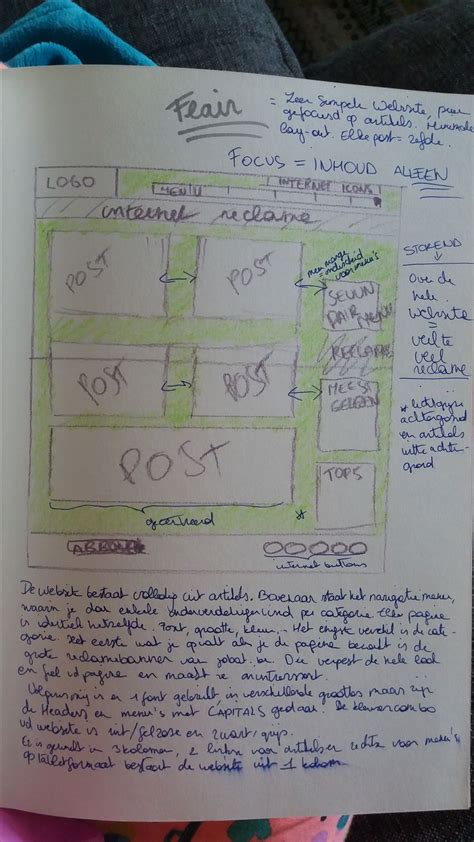 Flair
= Zeer simpele website, puur
gefocust op artikels. Minimale
lay-out. Elke post = zelfde.
FOCUS = INHOUD ALLEEN
LOGO
MENU
INTERNET ICONS
internet reclame
POST
POST
meer marge
= voor menu's
SECUN
DAIR MENU
RECLAME
POST
POST
MEEST
GELEZEN
POST
TOPS
gecentreerd
*
ABBONEER
internet buttons
STOREND
Over de
hele
website
=
veel te
veel
reclame
* lichtgrijze
achtergrond
en artikels
witte achter-
grond
De website bestaat volledig uit artikels. Bovenaan staat het navigatie menu,
waarin je dan enkele onderverdelingen vind per categorie. Elke pagina
is identiek hetzelfde. Font, grootte, kleur... Het enigste verschil is de cate-
gorie. Het eerste wat je opvalt als je de pagina bezoekt is de
grote reclamebanner van jobat.be. Die verpest de hele look
en feel vd pagina en maakt ze oninteressant.
is er 1 font gebruikt, in verschillende groottes maar zijn
de Headers en menu's met CAPITALS gedaan. De kleurencombo
vd website is wit/gelroze en zwart/grijs.
Er is gewerkt in 3 kolommen, 2 linkse voor artikels en rechtse voor menu's.
Op tabletformaat bestaat de website uit 1 kolom.